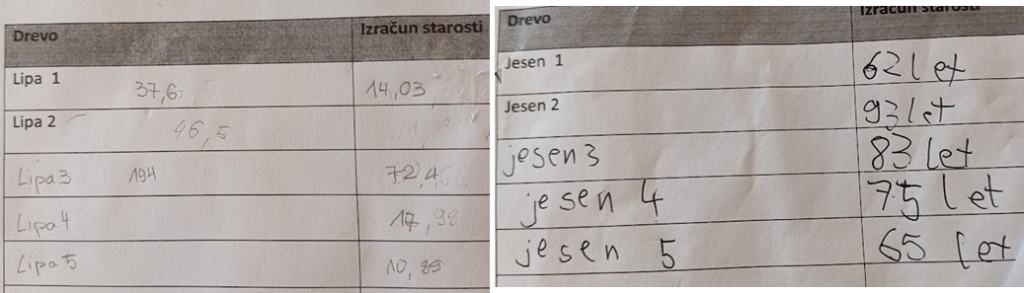 Drevo Izračun starosti
Lipa 1 37,6 14,03
Lipa 2 46,5
Lipa 3 194 72,4
Lipa 4 17,98
Lipa 5 10,89
Drevo Izračun starosti
Jesen 1 62 let
Jesen 2 93 let
jesen 3 83 let
jesen 4 75 let
jesen 5 65 let